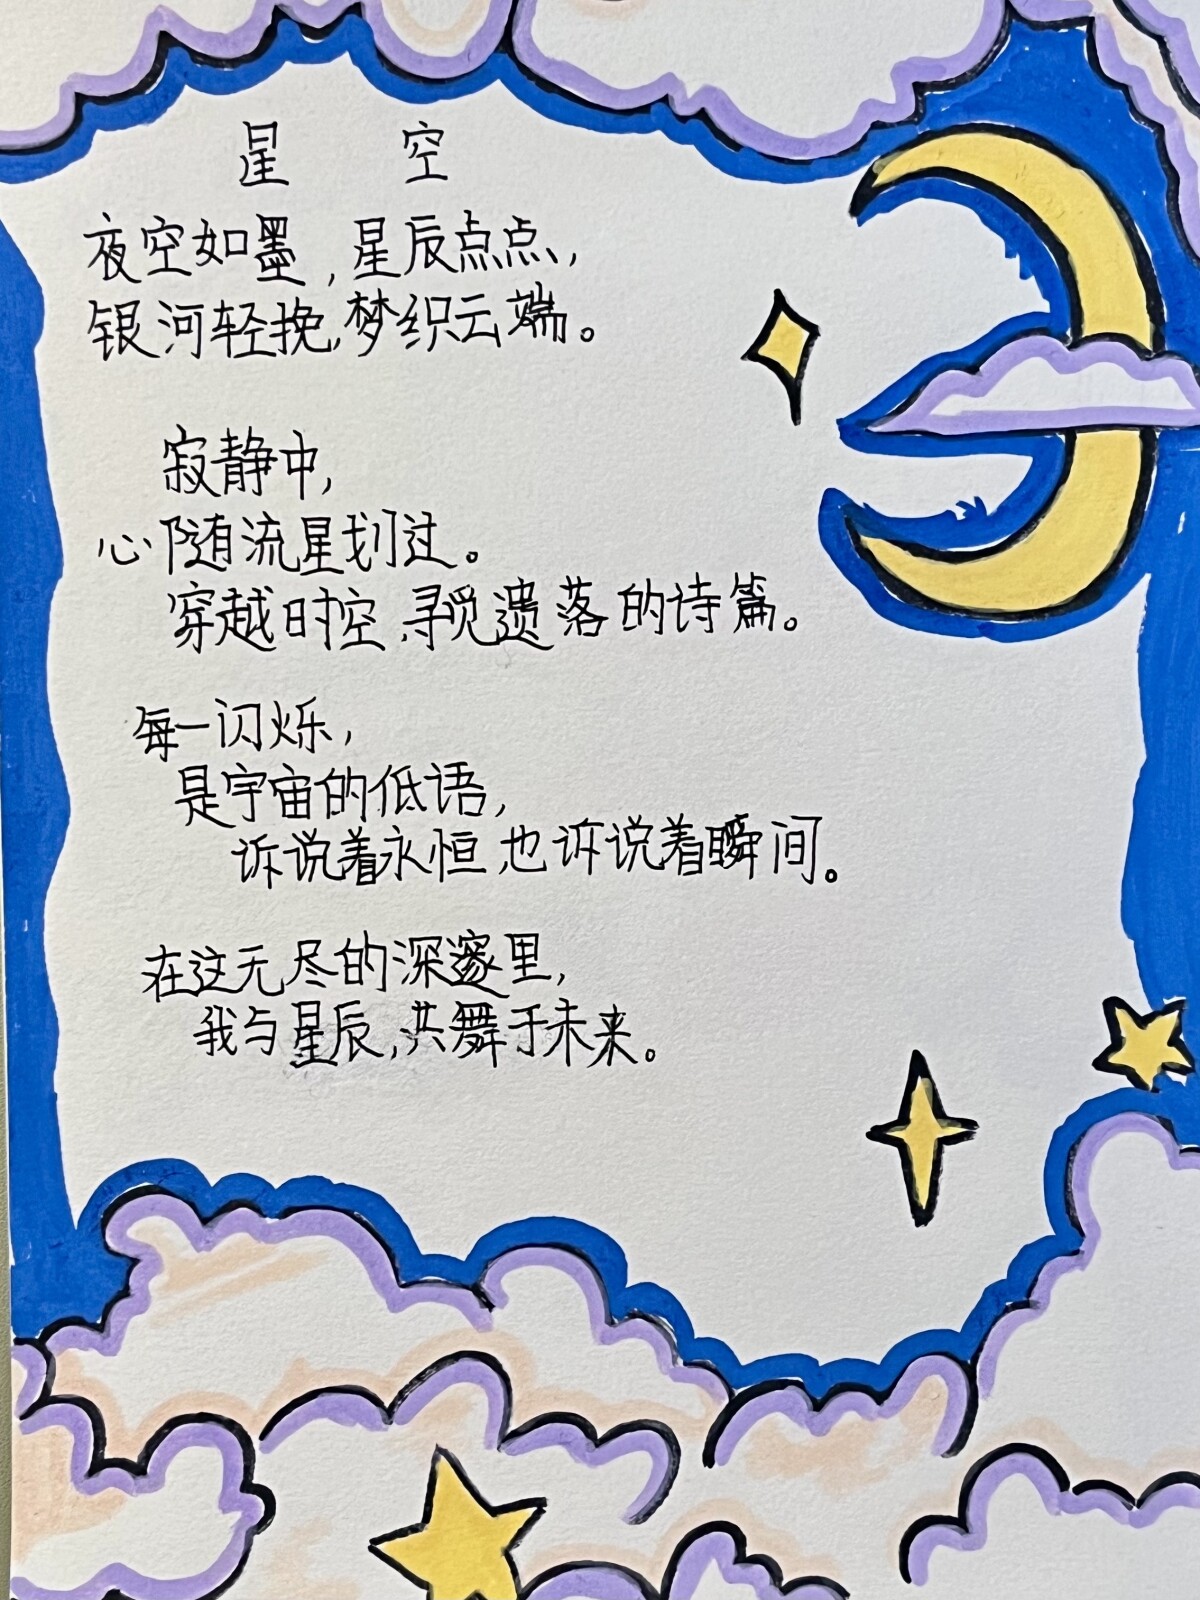 星 空
夜空如墨,星辰点点,
银河轻挽,梦织云端。
寂静中,
心随流星划过。
穿越时空,寻觅遗落的诗篇。
每一闪烁,
是宇宙的低语,
诉说着永恒也诉说着瞬间。
在这无尽的深邃里,
我与星辰,共舞于未来。